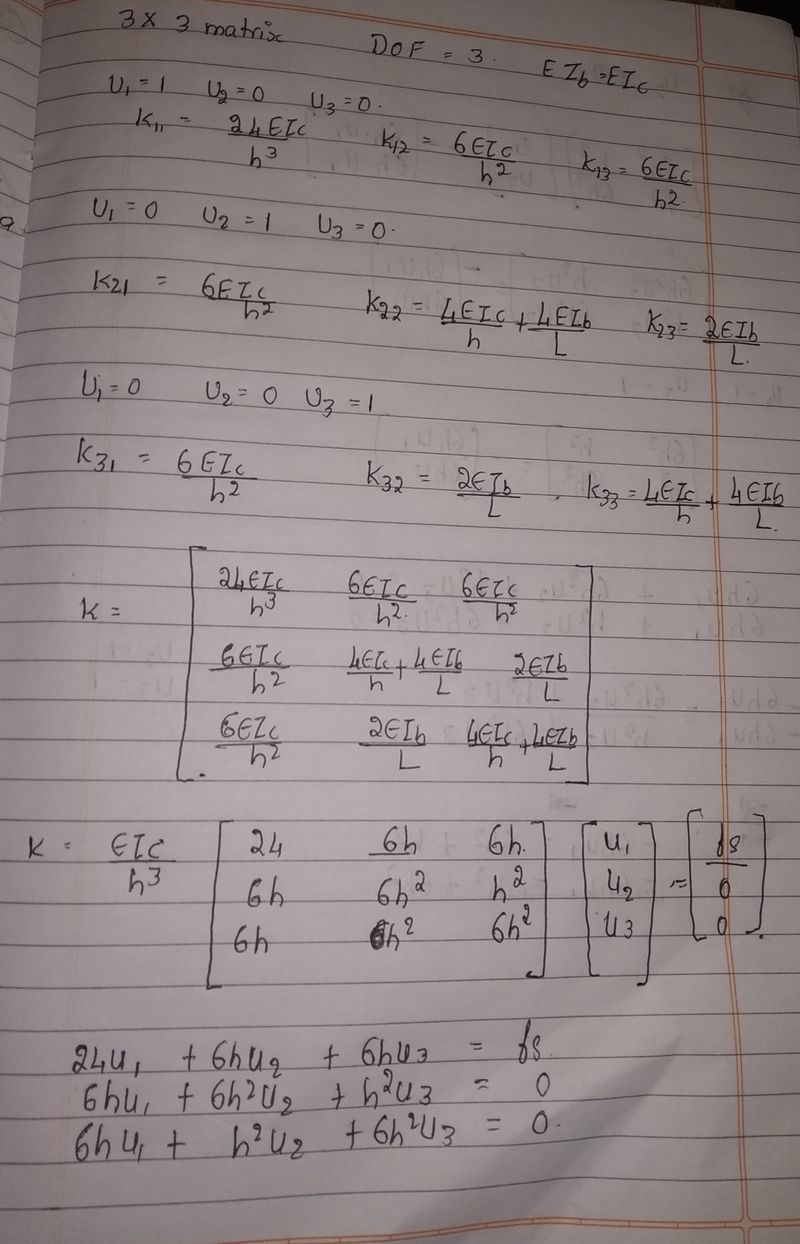 3 x 3 matrix DOF = 3. EIb = EIc
U₁ = 1 U₂ = 0 U₃ = 0.
K₁₁ = 24EIc/h³ K₁₂ = 6EIc/h² K₁₃ = 6EIc/h².
U₁ = 0 U₂ = 1 U₃ = 0.
K₂₁ = 6EIc/h² K₂₂ = 4EIc/h + 4EIb/L K₂₃ = 2EIb/L.
U₁ = 0 U₂ = 0 U₃ = 1
K₃₁ = 6EIc/h² K₃₂ = 2EIb/L . K₃₃ = 4EIc/h + 4EIb/L.
K = [ 24EIc/h³ 6EIc/h². 6EIc/h²
6EIc/h² 4EIc/h + 4EIb/L 2EIb/L
6EIc/h² 2EIb/L 4EIc/h + 4EIb/L ]
K = EIc/h³ [ 24 6h 6h. ] [ U₁ ] = [ fs ]
[ 6h 6h² h² ] [ U₂ ] [ 0 ]
[ 6h h² 6h² ] [ U₃ ] [ 0 ].
24U₁ + 6hU₂ + 6hU₃ = fs.
6hU₁ + 6h²U₂ + h²U₃ = 0
6hU₁ + h²U₂ + 6h²U₃ = 0.